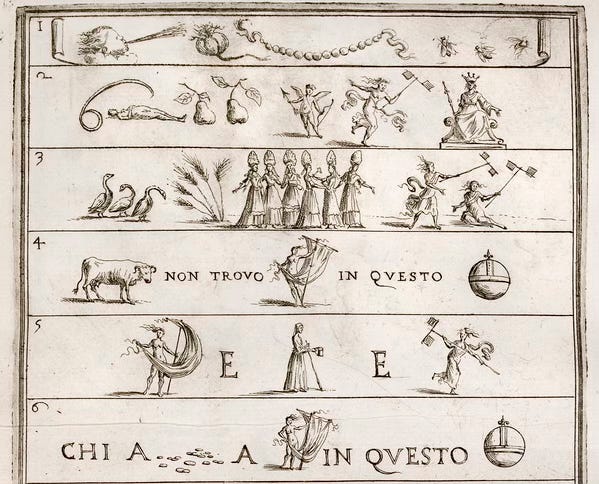 1
2
3
4
NON TROVO IN QVESTO
5
E E
6
CHI A A IN QVESTO